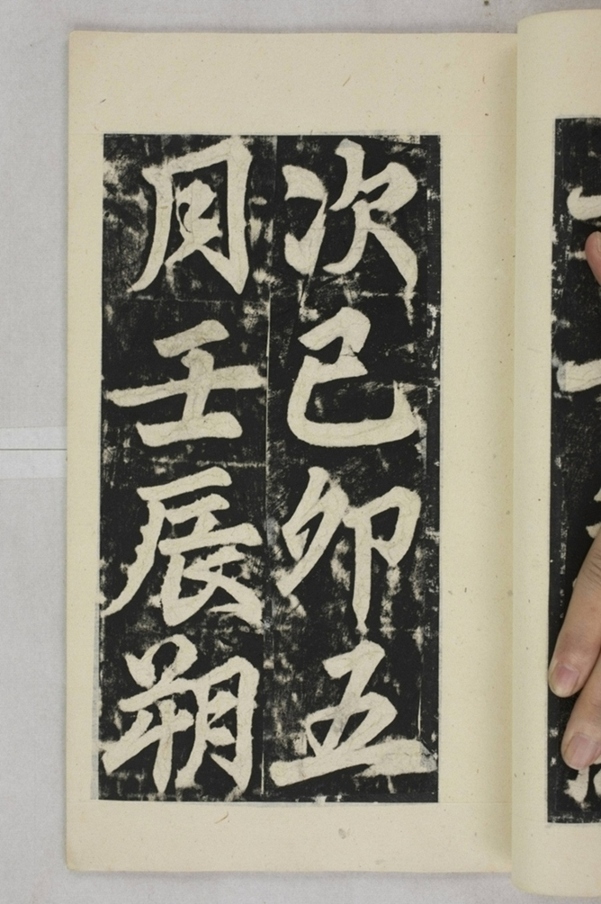 次己卯五
月壬辰朔